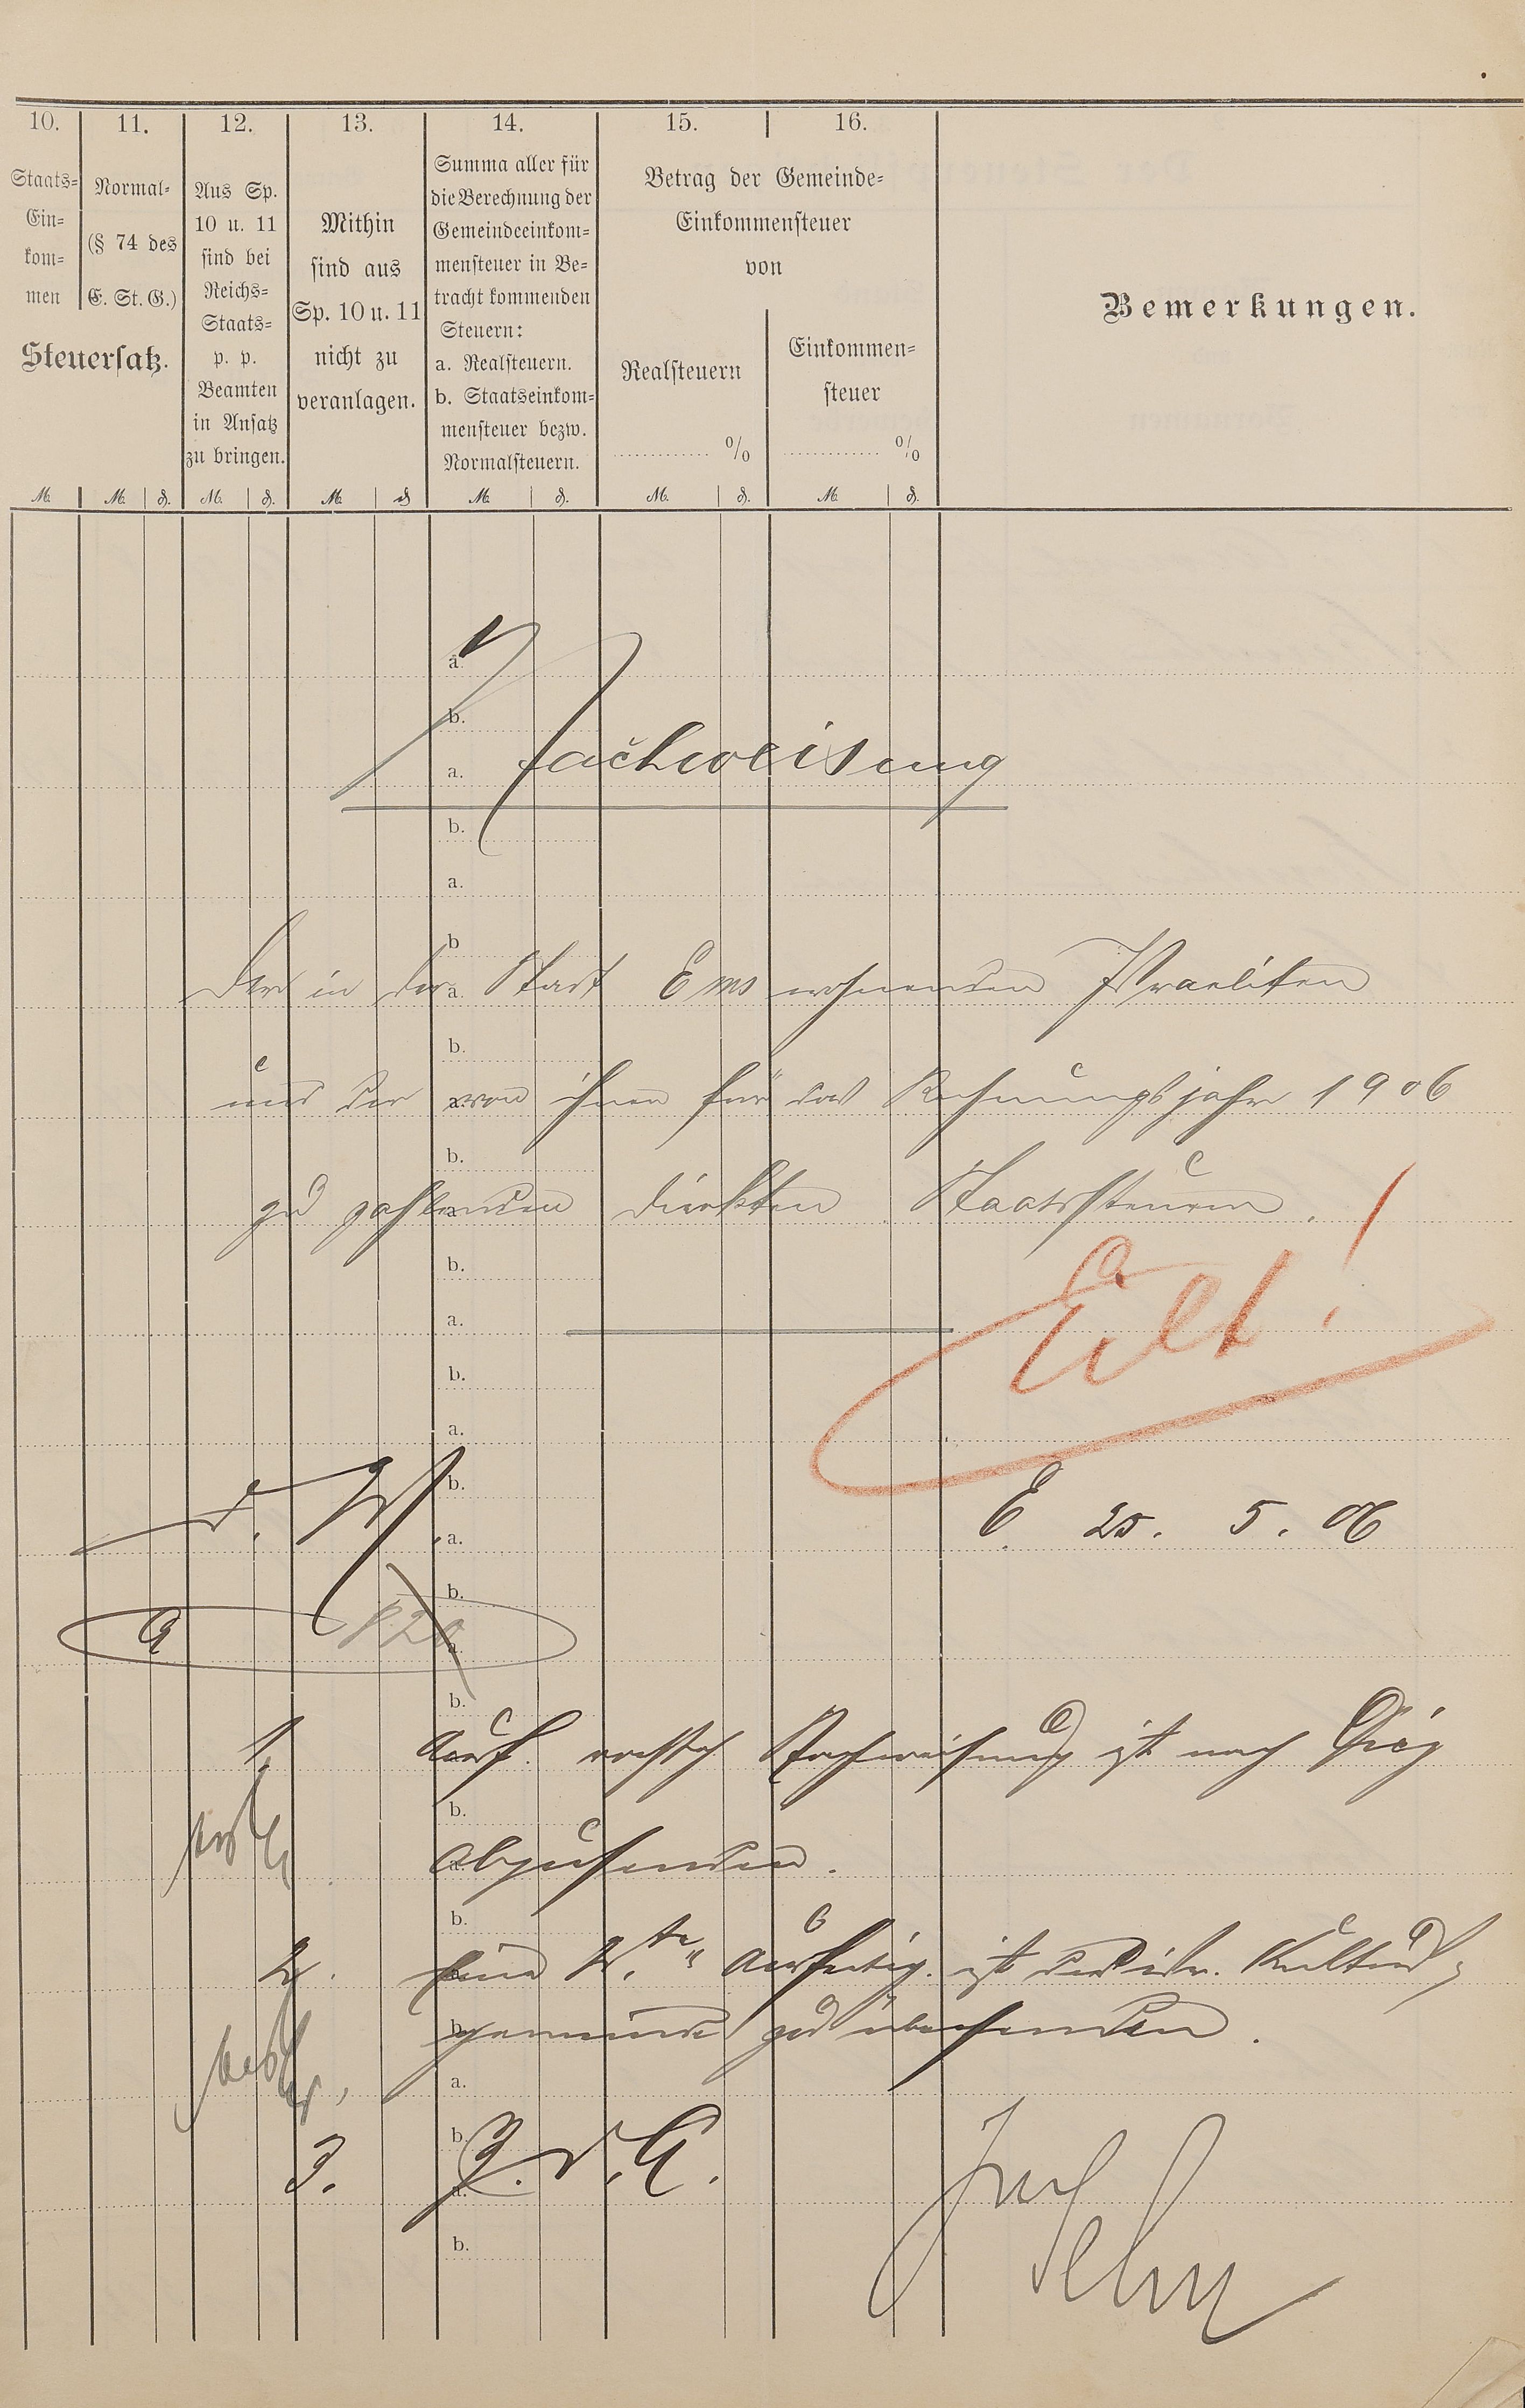 10. 11. 12. 13. 14. 15. 16.
Staats-
Ein-
kom-
men
Normal-
(§ 74 des
E. St. G.)
Steuersatz.
Aus Sp.
10 u. 11
sind bei
Reichs-
Staats-
p. p.
Beamten
in Ansatz
zu bringen.
Mithin
sind aus
Sp. 10 u. 11
nicht zu
veranlagen.
Summa aller für
die Berechnung der
Gemeindeeinkom-
mensteuer in Be-
tracht kommenden
Steuern:
a. Realsteuern.
b. Staatseinkom-
mensteuer bezw.
Normalsteuern.
Betrag der Gemeinde-
Einkommensteuer
von
Realsteuern
%
Einkommen-
steuer
%
Bemerkungen.
M. M. d. M. d. M. d. M. d. M. d. M. d.
a.
b.
a. Nachweisung
b.
a.
b
der in der a. Stadt Ems wohnenden Israeliten
b.
und der von ihnen für das Rechnungsjahr 1906
b.
zu zahlenden direkten Staatssteuern.
b.
Eilt!
a.
b.
a.
b.
E 25. 5. 06
a.
b.
a.
b.
1. Ausf. Nachweisung ist nach Diez
b.
abzusenden.
b.
2. Eine 2.te Ausfertig. ist der isr. Kultus-
b.
gemeinde zu übersenden.
a.
b.
3. Z. d. A.
a.
b.